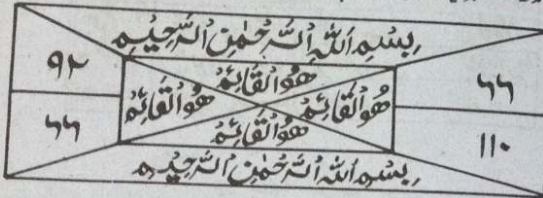 بِسْمِ اللّٰهِ الرَّحْمٰنِ الرَّحِيْمِ
۹۲
هُوَ الْقَائِمُ
۶۶
هُوَ الْقَائِمُ
هُوَ الْقَائِمُ
۶۶
هُوَ الْقَائِمُ
۱۱۰
بِسْمِ اللّٰهِ الرَّحْمٰنِ الرَّحِيْمِ